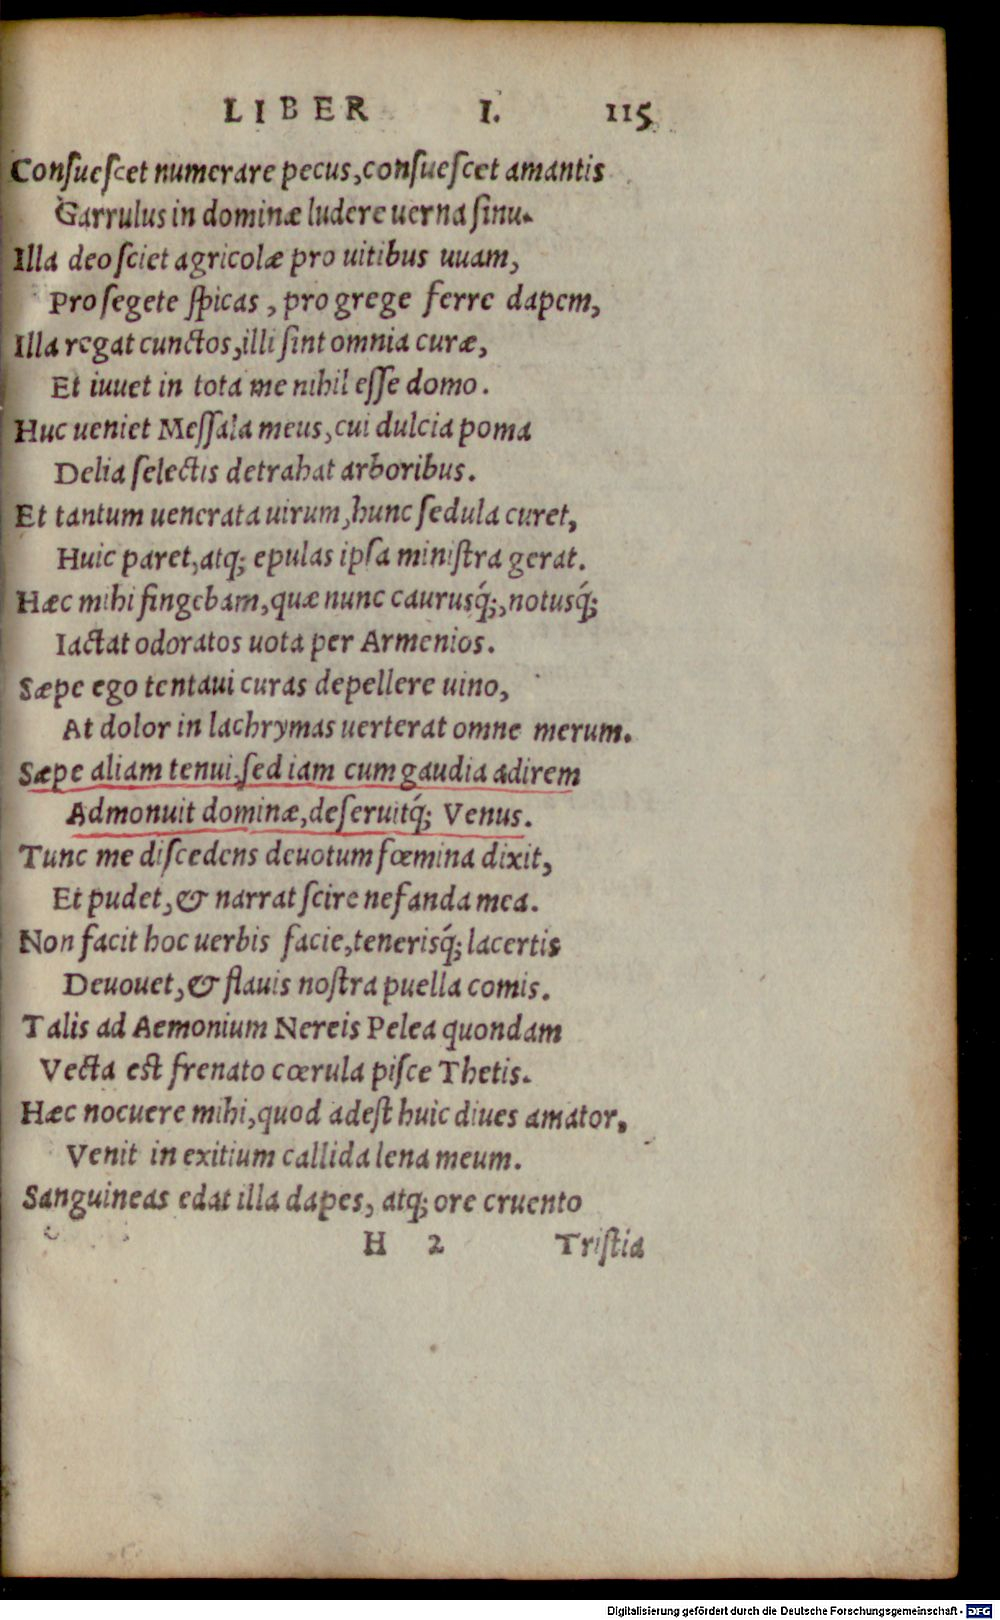 LIBER I. 115
Conſueſcet numerare pecus, conſueſcet amantis
Garrulus in dominæ ludere uerna ſinu.
Illa deo ſciet agricolæ pro uitibus uuam,
Pro ſegete ſpicas, pro grege ferre dapem,
Illa regat cunctos, illi ſint omnia curæ,
Et iuuet in tota me nihil eſſe domo.
Huc ueniet Meſſala meus, cui dulcia poma
Delia ſelectis detrahat arboribus.
Et tantum uenerata uirum, hunc ſedula curet,
Huic paret, atq; epulas ipſa miniſtra gerat.
Hæc mihi fingebam, quæ nunc caurusq́;, notusq́;
Iactat odoratos uota per Armenios.
Sæpe ego tentaui curas depellere uino,
At dolor in lachrymas uerterat omne merum.
Sæpe aliam tenui. ſed iam cum gaudia adirem
Admonuit dominæ, deſeruitq́; Venus.
Tunc me diſcedens deuotum fœmina dixit,
Et pudet, & narrat ſcire nefanda mea.
Non facit hoc uerbis facie, tenerisq́; lacertis
Deuouet, & flauis noſtra puella comis.
Talis ad Aemonium Nereis Pelea quondam
Vecta eſt frenato cœrula piſce Thetis.
Hæc nocuere mihi, quod adeſt huic diues amator,
Venit in exitium callida lena meum.
Sanguineas edat illa dapes, atq; ore cruento
H 2 Triſtia
Digitalisierung gefördert durch die Deutsche Forschungsgemeinschaft - DFG